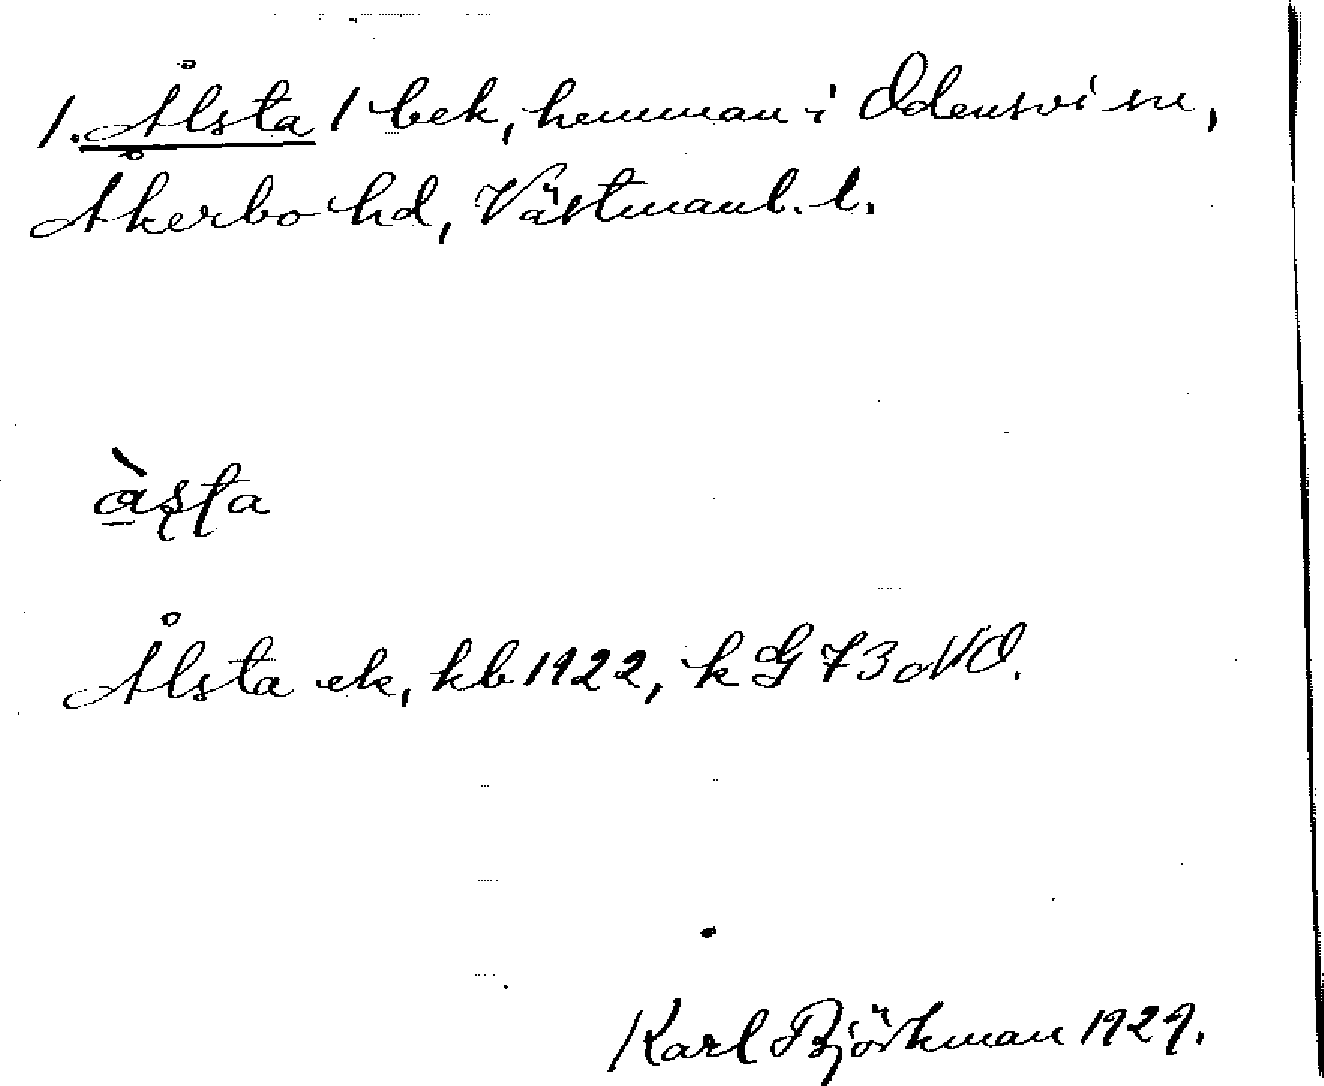 1. Ålsta / bek, hemman i Odensvi sn,
Åkerbo hd, Västmanl. l.
àsta
Ålsta ek, kb 1922, k G 73 NO.
Karl Björkman 1929.